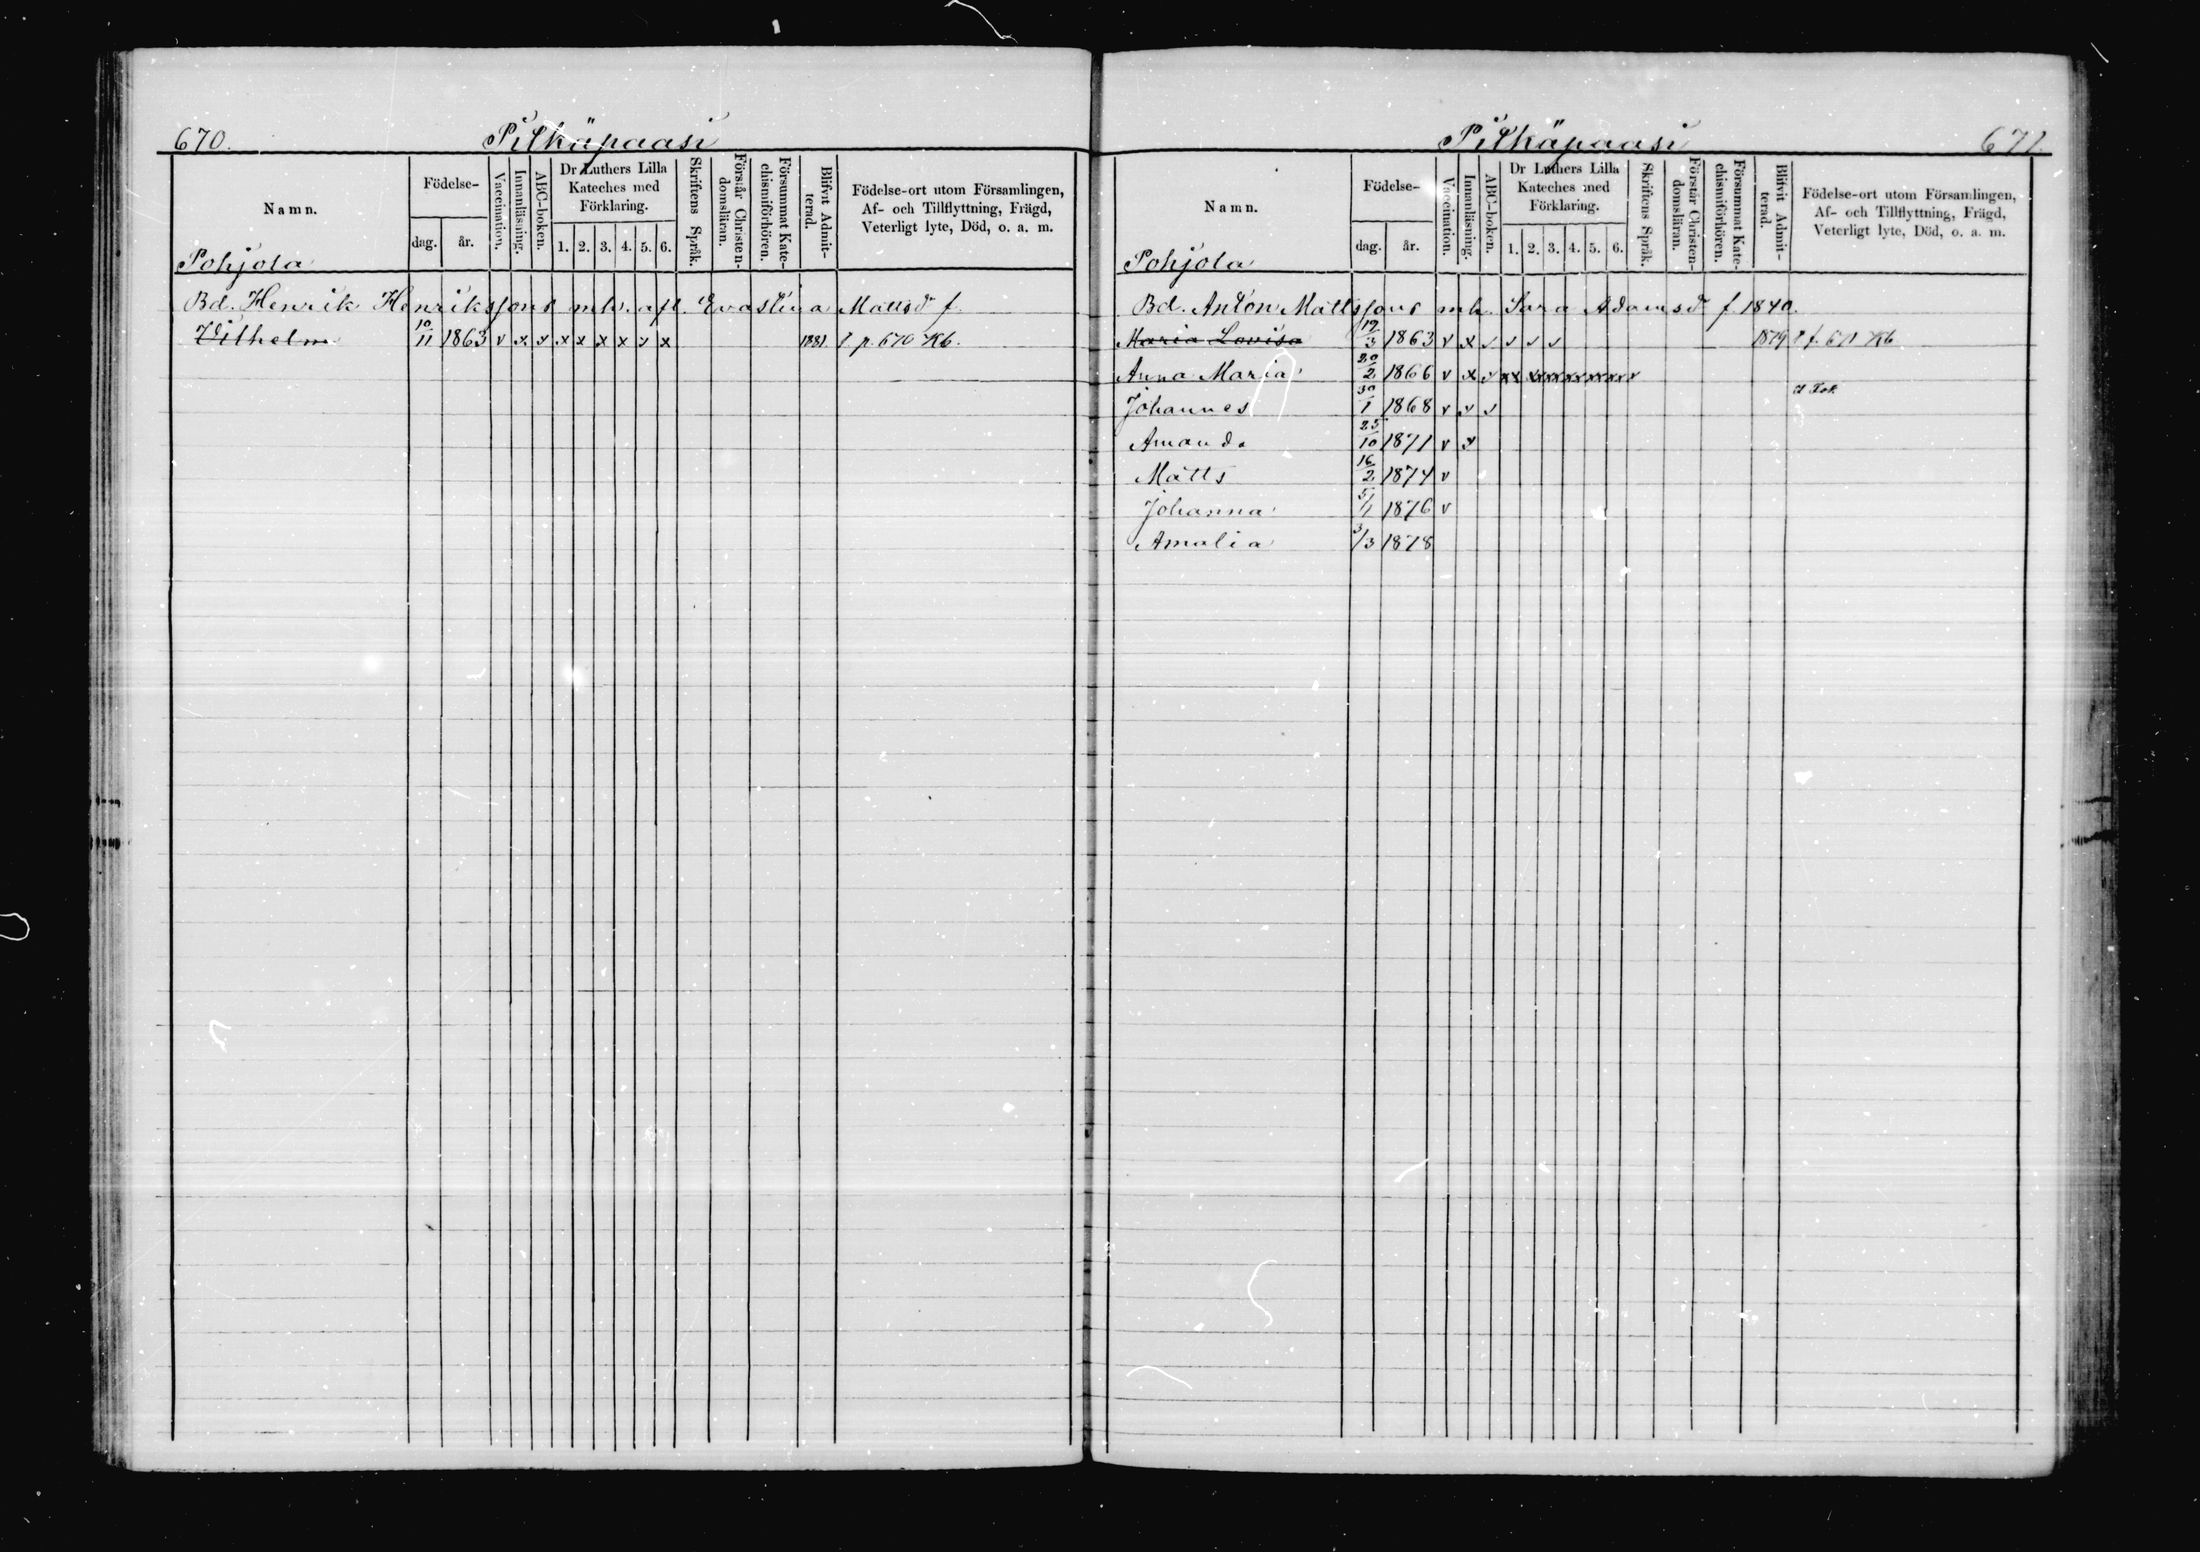 670. Pitkäpaasi
Namn. Födelse- dag. år. Vaccination. Innanläsning. ABC-boken. Dr Luthers Lilla Kateches med Förklaring. 1. 2. 3. 4. 5. 6. Skriftens Språk. Förstår Christendomsläran. Försummat Katechismiförhören. Blifvit Admitterad. Födelse-ort utom Församlingen, Af- och Tillflyttning, Frägd, Veterligt lyte, Död, o. a. m.
Pohjola
Bd. Henrik Henrikssons mh. afl. Evastina Mattsdr f.
Vilhelm 10/11 1863 v x x x x x x v x 1881. p. 670 Kb.
Pitkäpaasi 671.
Namn. Födelse- dag. år. Vaccination. Innanläsning. ABC-boken. Dr Luthers Lilla Kateches med Förklaring. 1. 2. 3. 4. 5. 6. Skriftens Språk. Förstår Christendomsläran. Försummat Katechismiförhören. Blifvit Admitterad. Födelse-ort utom Församlingen, Af- och Tillflyttning, Frägd, Veterligt lyte, Död, o. a. m.
Pohjola
Bd. Anton Mattssons mh. Sara Adamsdr f. 1840.
Maria Lovisa 19/3 1863 v x v v v v 1879 671 Kb
Anna Maria 20/2 1866 v x v xx xx xx xx xx xx v
Johannes 30/1 1868 v v v
Amanda 25/10 1871 v x
Matts 16/2 1874 v
Johanna 5/1 1876 v
Amalia 3/3 1878